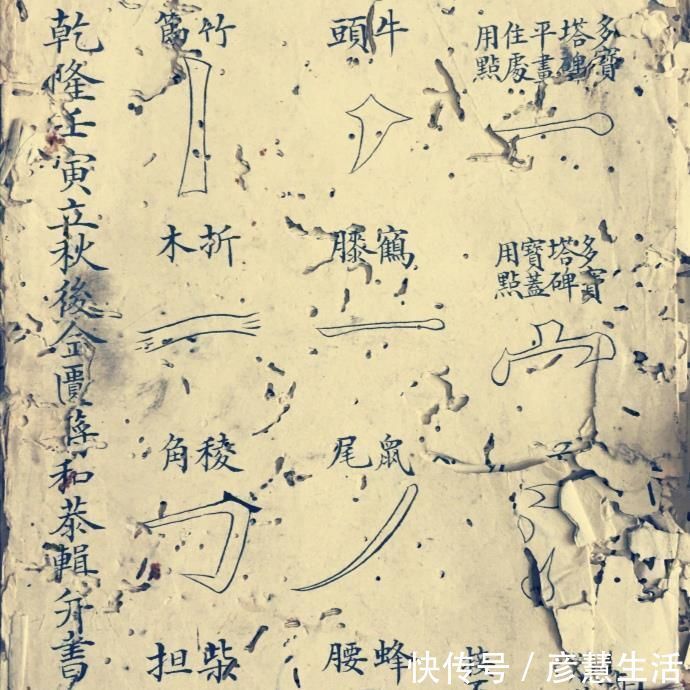 多寶塔碑平畫住處用點
多寶塔碑寶蓋用點
牛頭
鶴膝
鼠尾
蜂腰
竹
折木
稜角
柴担
乾隆壬寅立秋後金匱蔣和恭輯并書
快传号/彦慧生活